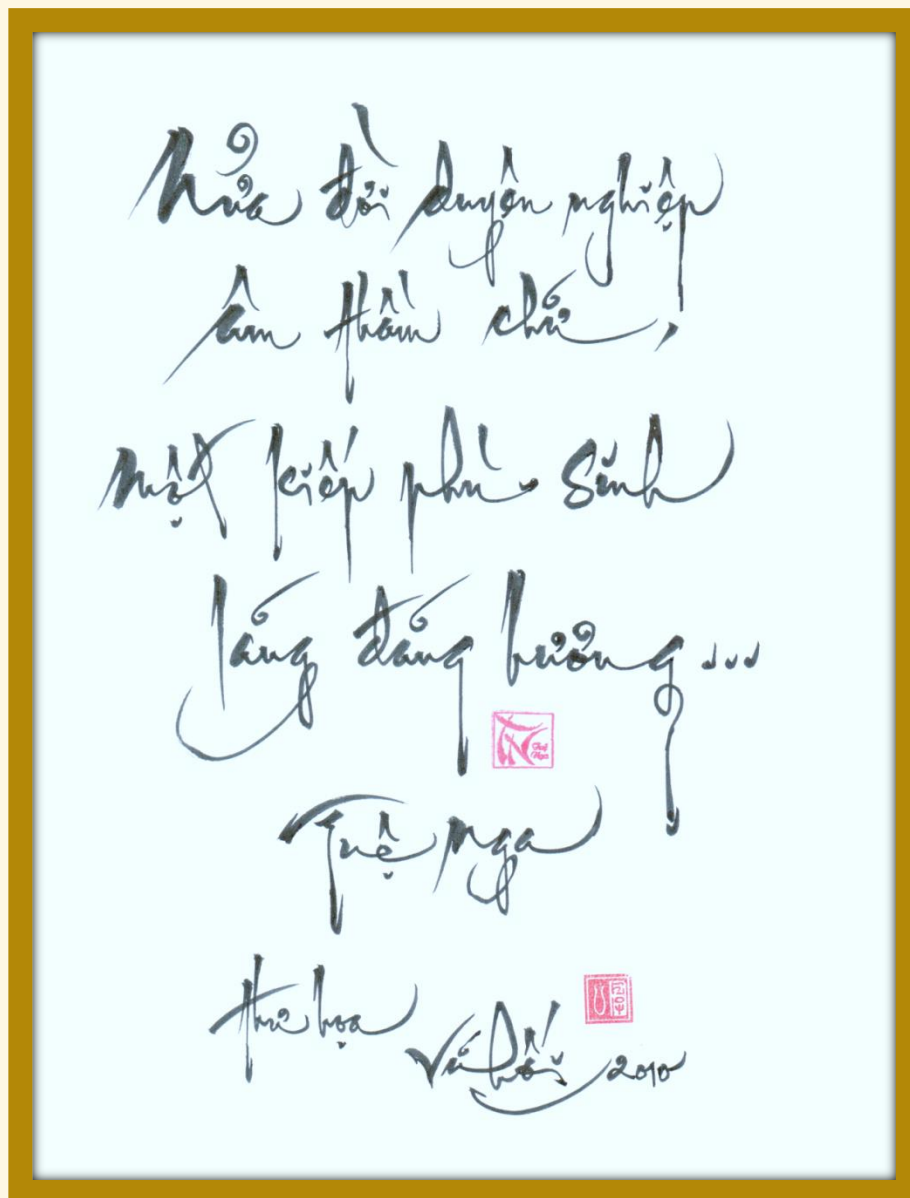 Nửa đời duyên nghiệp
âm thầm chứ,
một kiếp phù sinh
lắng đắng buông...
Tuệ Nga
thư họa
Vũ Hối 2010